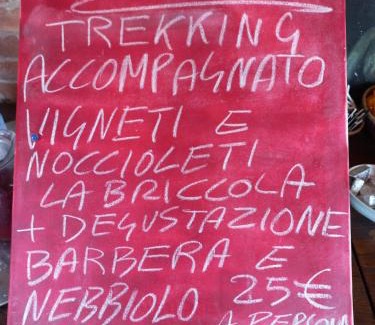 TREKKING
ACCOMPAGNATO
VIGNETI E
NOCCIOLETI
LA BRICCOLA
+ DEGUSTAZIONE
BARBERA E
NEBBIOLO 25€